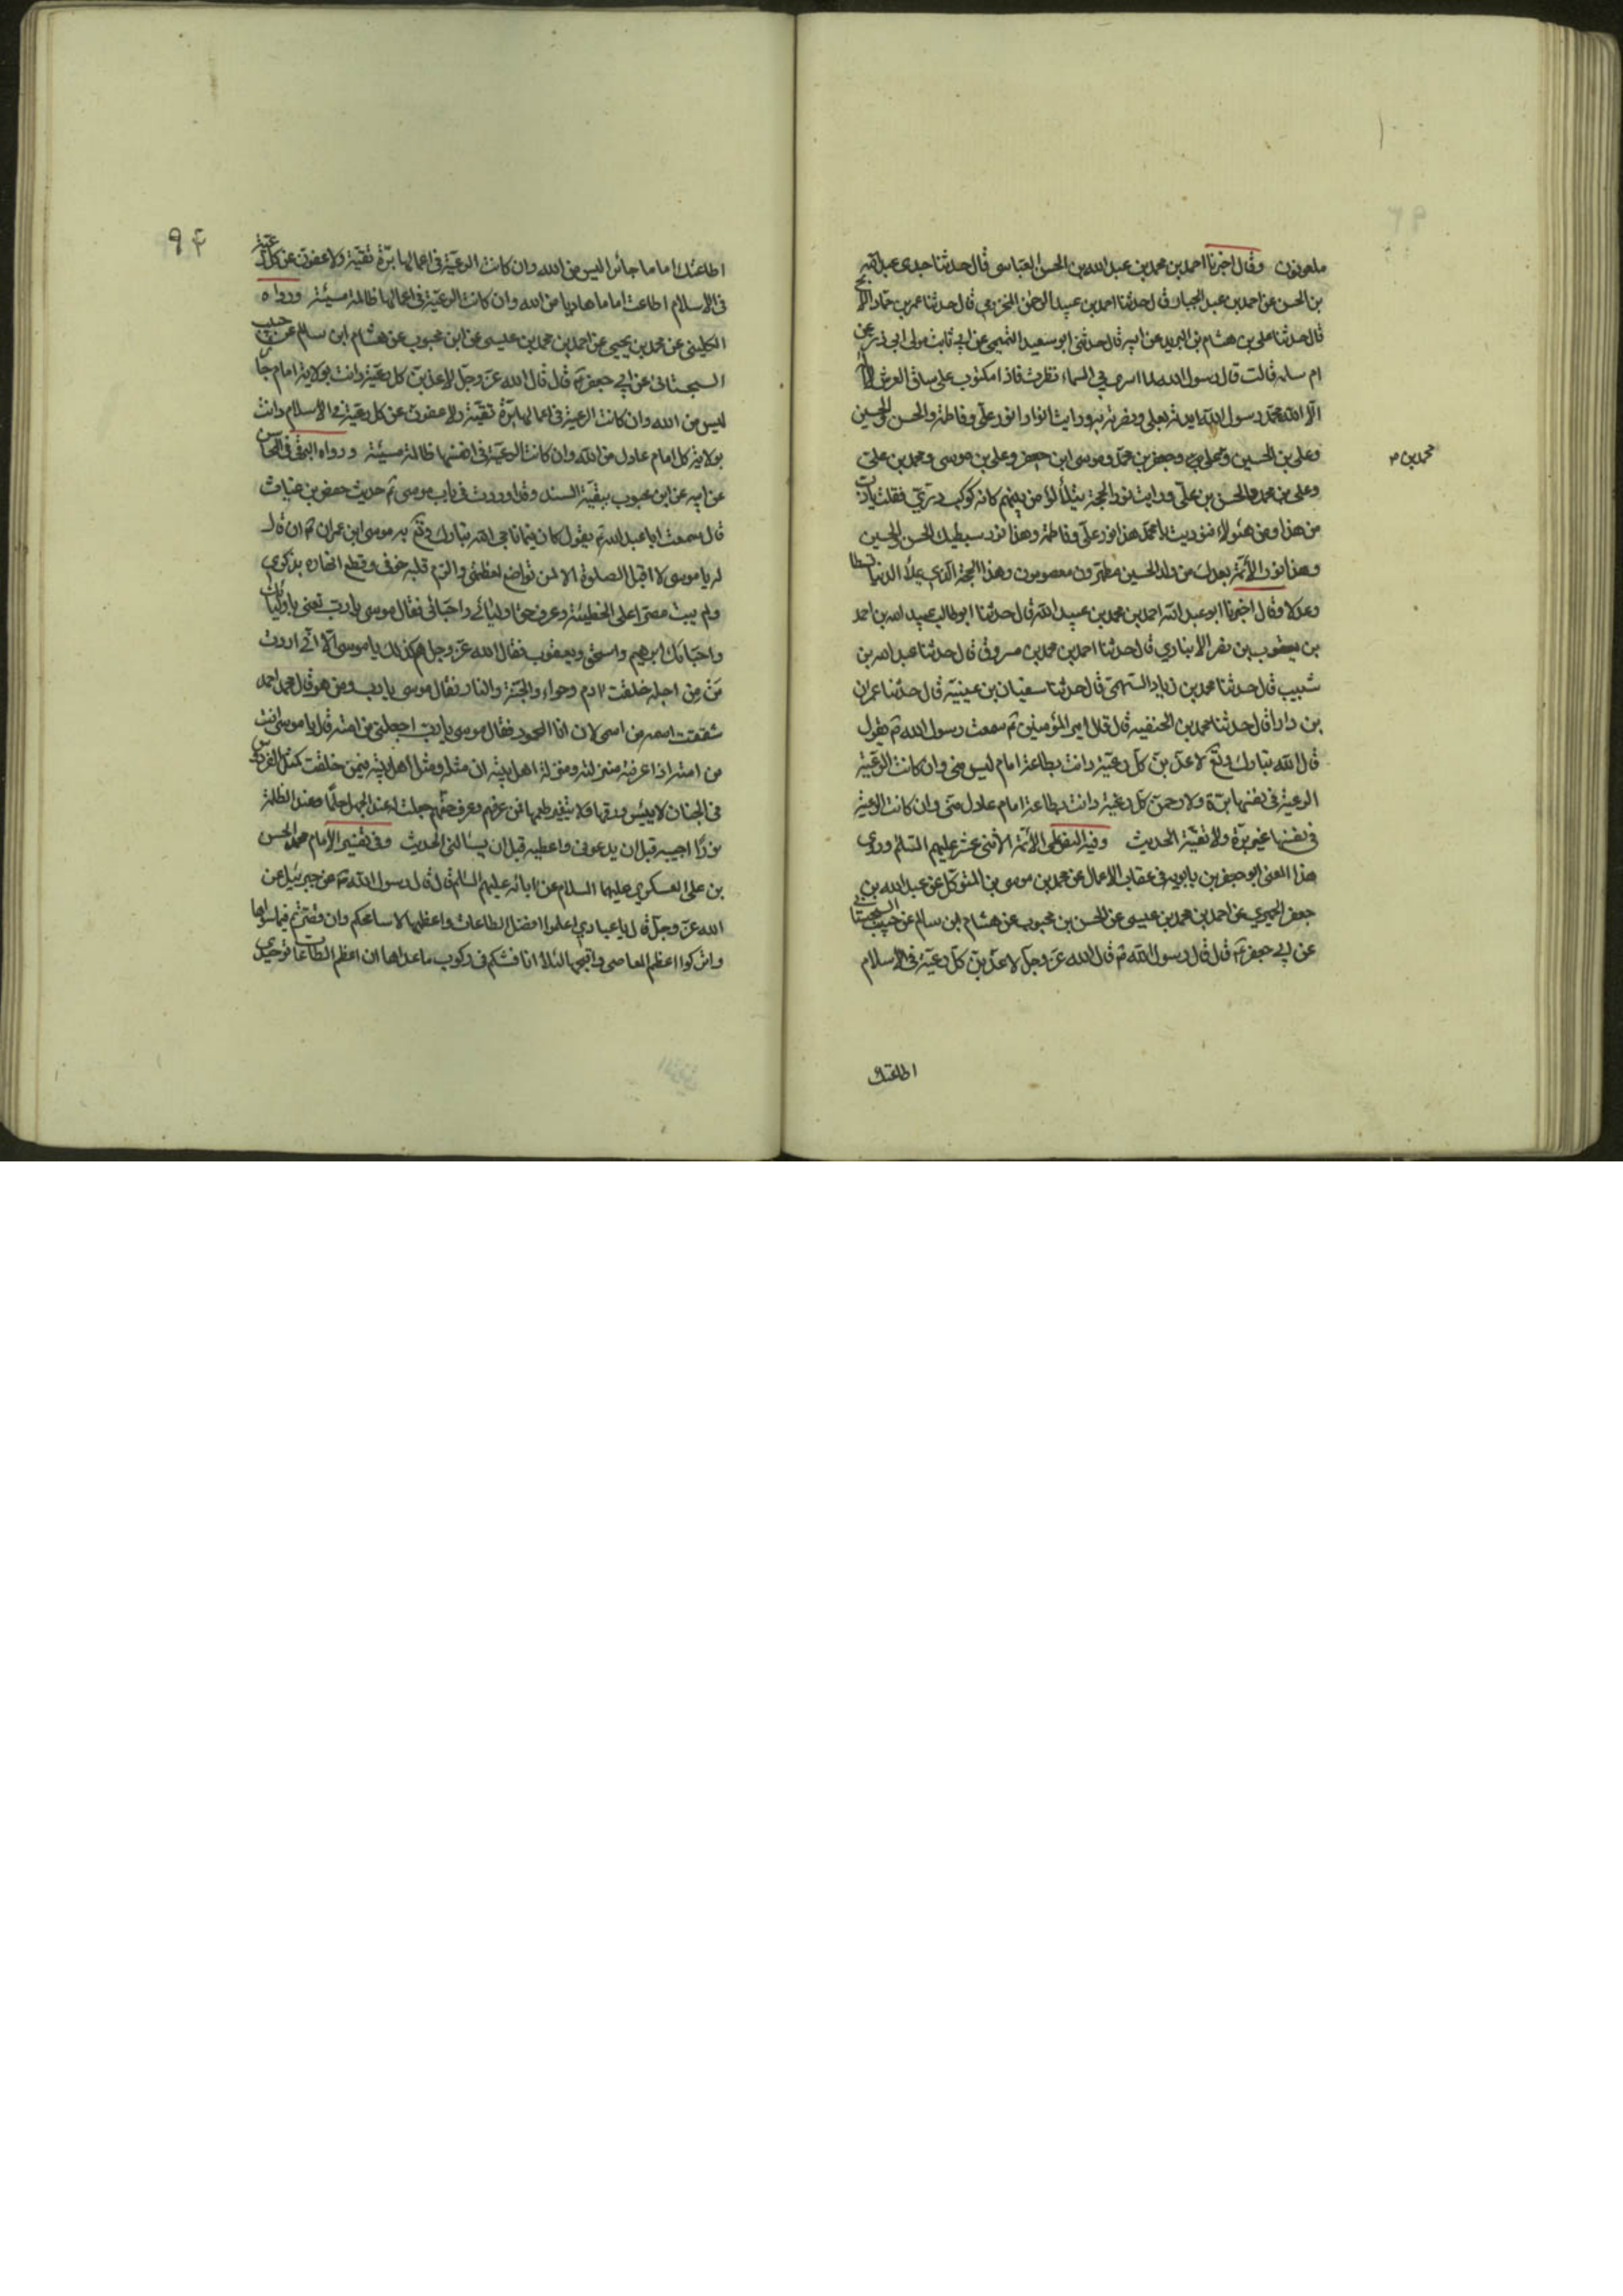 ملعونون وقال اخبرنا احمد بن محمد بن عبد الله بن الحسن العباسى قال حدثنا جدى عبد الله
بن الحسن عن احمد بن عبد الجبار قال حدثنا احمد بن عبيد الرحمن المخزومي قال حدثنا عمر بن حماد الابح
قال حدثنا على بن هشام بن البريد عن ابيه قال حدثنى ابو سعيد التميمي عن ابي ثابت مولى ابى ذر عن
ام سلمه قالت قال رسول الله لما اسرى بي الى السماء نظرت فاذا مكتوب على ساق العرش لا اله
الا الله محمد رسول الله ايدته بعلى ونصرته به ورايت انوار انور على وفاطمة والحسن والحسين
وعلى بن الحسين ومحمد بن على وجعفر بن محمد وموسى ابن جعفر وعلى بن موسى ومحمد بن على
محمد بن
وعلى بن محمد والحسن بن على ورايت نور الحجة يتلألؤ من بينهم كانه كوكب درّي فقلت يا رب
من هذا ومن هئولاء فنوديت يا محمد هذا نور على وفاطمة وهذا نور سبطيك الحسن والحسين
وهذا نور الائمّة بعدك من ولد الحسين مطهرون معصومون وهذا الحجة الذي يملأ الدنيا قسطا
وعدلا وقال اخبرنا ابو عبد الله احمد بن محمد بن عبيد الله قال حدثنا ابو طالب عبيد الله بن احمد
بن يعقوب بن نصر الانباري قال حدثنا احمد بن محمد بن مسروق قال حدثنا عبد الله بن
شبيب قال حدثنا محمد بن زياد السهمى قال حدثنا سفيان بن عيينة قال حدثنا عمران
بن دارا قال حدثنا محمد بن الحنفيه قال قال امير المؤمنين سمعت رسول الله يقول
قال الله تبارك وتعٓ لاعذّبنّ كلّ رعيّة دانت بطاعة امام ليس منى وان كانت الرعيّة
الرعية فى نفسها برّة ولارحمنّ كل رعية دانت بطاعة امام عادل منى وان كانت الرعية
فى نفسها غير برّة ولا تقيّة الحديث وفيه النص على الائمة الاثنى عشر عليهم السّلم وروى
هذا المعنى ابو جعفر بن بابويه فى عقاب الاعمال عن محمد بن موسى بن المتوكل عن عبد الله بن
جعفر الحميري عن احمد بن محمد بن عيسى عن الحسن بن محبوب عن هشام ابن سالم عن حبيب السجستانى
عن ابي جعفر قال قال رسول الله قال الله عز وجلّ لاعذّبنّ كلّ رعيّة فى الاسلام
اطاعتك
٩٤
اطاعتك اماما جائرا ليس من الله وان كانت الرعيّة فى اعمالها برّة تقيّة ولاعفونّ عن كل رعيّة
فى الاسلام اطاعت اماما هاديا من الله وان كانت الرعيّة فى اعمالها ظالمة مسيئة ورواه
الكلينى عن محمد بن يحيى عن احمد بن محمد بن عيسى عن ابن محبوب عن هشام ابن سالم عن حبيب
السجستانى عن ابي جعفر قال قال الله عزّ وجلّ لاعذبنّ كل رعيّة دانت بولاية امام جائر
ليس من الله وان كانت الرعية فى اعمالها برّة تقيّة ولاعفونّ عن كل رعيّة فى الاسلام دانت
بولاية كل امام عادل من الله وان كانت الرعيّة فى انفسها ظالمة مسيئة ورواه البرقى فى المحاسن
عن ابيه عن ابن محبوب ببقيّة السند وقد اوردت فى باب موسى حديث حفص بن غياث
قال سمعت ابا عبد الله يقول كان فيما ناجى الله تبارك وتعٓ به موسى ابن عمران ان قال
له يا موسى لا اقبل الصلوة الا لمن تواضع لعظمتى والزم قلبه خوفى وقطع نهاره بذكري
ولم يبت مصرّا على الخطيئة وعرف حق اوليائى واحبّائى فقال موسى يا ربّ تعنى باوليائك
واحبّائك ابرهيم واسحق ويعقوب فقال الله عزّ وجلّ هم كذلك يا موسى الّا انّى اردت
مَنْ مِن اجله خلقت ادم وحواء والجنّة والنار فقال موسى يا رب ومن هو قال محمد احمد
شققت اسمه من اسمى لان انا المحمود فقال موسى يا رب اجعلنى من امته قال يا موسى انت
من امته اذا عرفته منزلته ومنزلة اهل بيته ان مثله ومثل اهل بيته فيمن خلقت كمثل الفردوس
فى الجنان لا ييبس ورقها ولا يتغير طعمها فمن عرفهم وعرف حقهم جعلت له عند الجهل حلمًا وعند الظلمة
نورًا اجيبه قبل ان يدعونى واعطيه قبل ان يسالنى الحديث وفى تفسير الامام محمد الحسن
بن على العسكرى عليهما السلام عن ابائه عليهم السّلم قال قال رسول الله عن جبرئيل عن
الله عز وجلّ قال يا عبادي اعلموا افضل الطاعات واعظمها لاسامحكم وان قصّرتم فيما سواها
واتركوا اعظم المعاصى واقبحها لئلا اناقشكم فى ركوب ماعداها ان اعظم الطاعات توحيدى